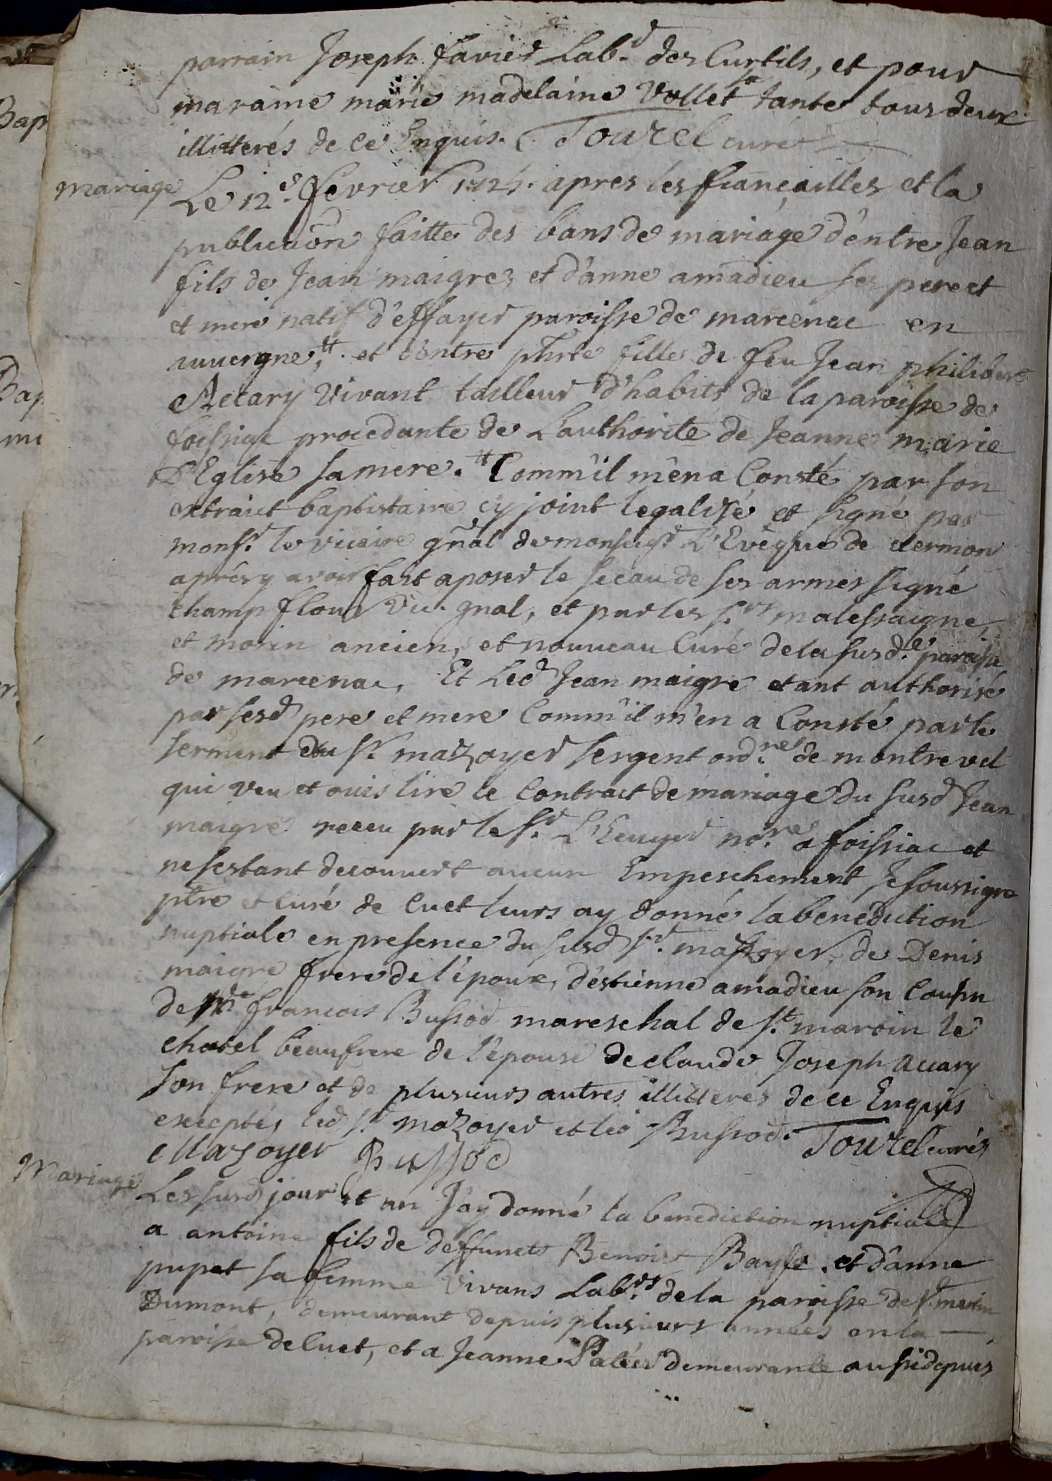 parrain Joseph favier Lab.r des Curtils, et pour
maraine marie madelaine Vollet sa tante tous deux
illitterés de ce Enquis. Tourel curé
mariage Le 12.e fevrier apres les fiançailles et la
publication faitte des bans de mariage d'entre Jean
fils de Jean maigrez et d'anne amadieu ses pere et
et mere natif d'effayer paroisse de marcenac en
auvergne, et d'entre fille de feu Jean philibert
Accary Vivant tailleur d'habits de la paroisse de
foissiat procedante de L'authorité de Jeanne marie
D'Eglise sa mere. Comm'il m'en a Consté par son
extrait baptistaire cy joint legalisé et signé par
mons.r le vicaire gñal de monseig.r L'Evêque de clermon
aprés y avoir fait aposer le sceau de ses armes signé
champflour vic. gnal, et par les s.rs malessaigne
et morin ancien, et nouveau Curé de la susd.e paroisse
de marcenac, Et Led Jean maigre etant authorisé
par sesd pere et mere Comm'il m'en a Consté par le
serment du s.r mazoyer sergent ord.re de montrevel
qui veu et ouis lire le Contract de mariage du susd Jean
maigre receu par le s.r L'Ecuyer no.re a foissiac et
ne s'estant decouvert aucun Empeschement Je soussigné
ptre et curé de Cuet leurs ay donné la benediction
nuptiale en presence du susd s.r mazoyer, de Denis
maigre frere de l'époux, d'estienne amadieu son Cousin
de francois Bussod mareschal de s.t martin le
chatel beaufrere de l'epouse de claude Joseph accary
son frere et de plusieurs autres illitterés de ce Enquis
exceptés led s.r mazoyer et led Bussod. Tourel curé
Mazoyer Bussod
Mariage Les susd jour et an J'ay donné la benediction nuptiale
a antoine fils de deffunets Benoist Bayle et d'anne
pupet sa femme Vivans Lab.rs de la paroisse de s.t martin
Dumont, demeurant depuis plusieurs années en la
paroisse de Cuet, et a Jeanne demeurante aussi depuis